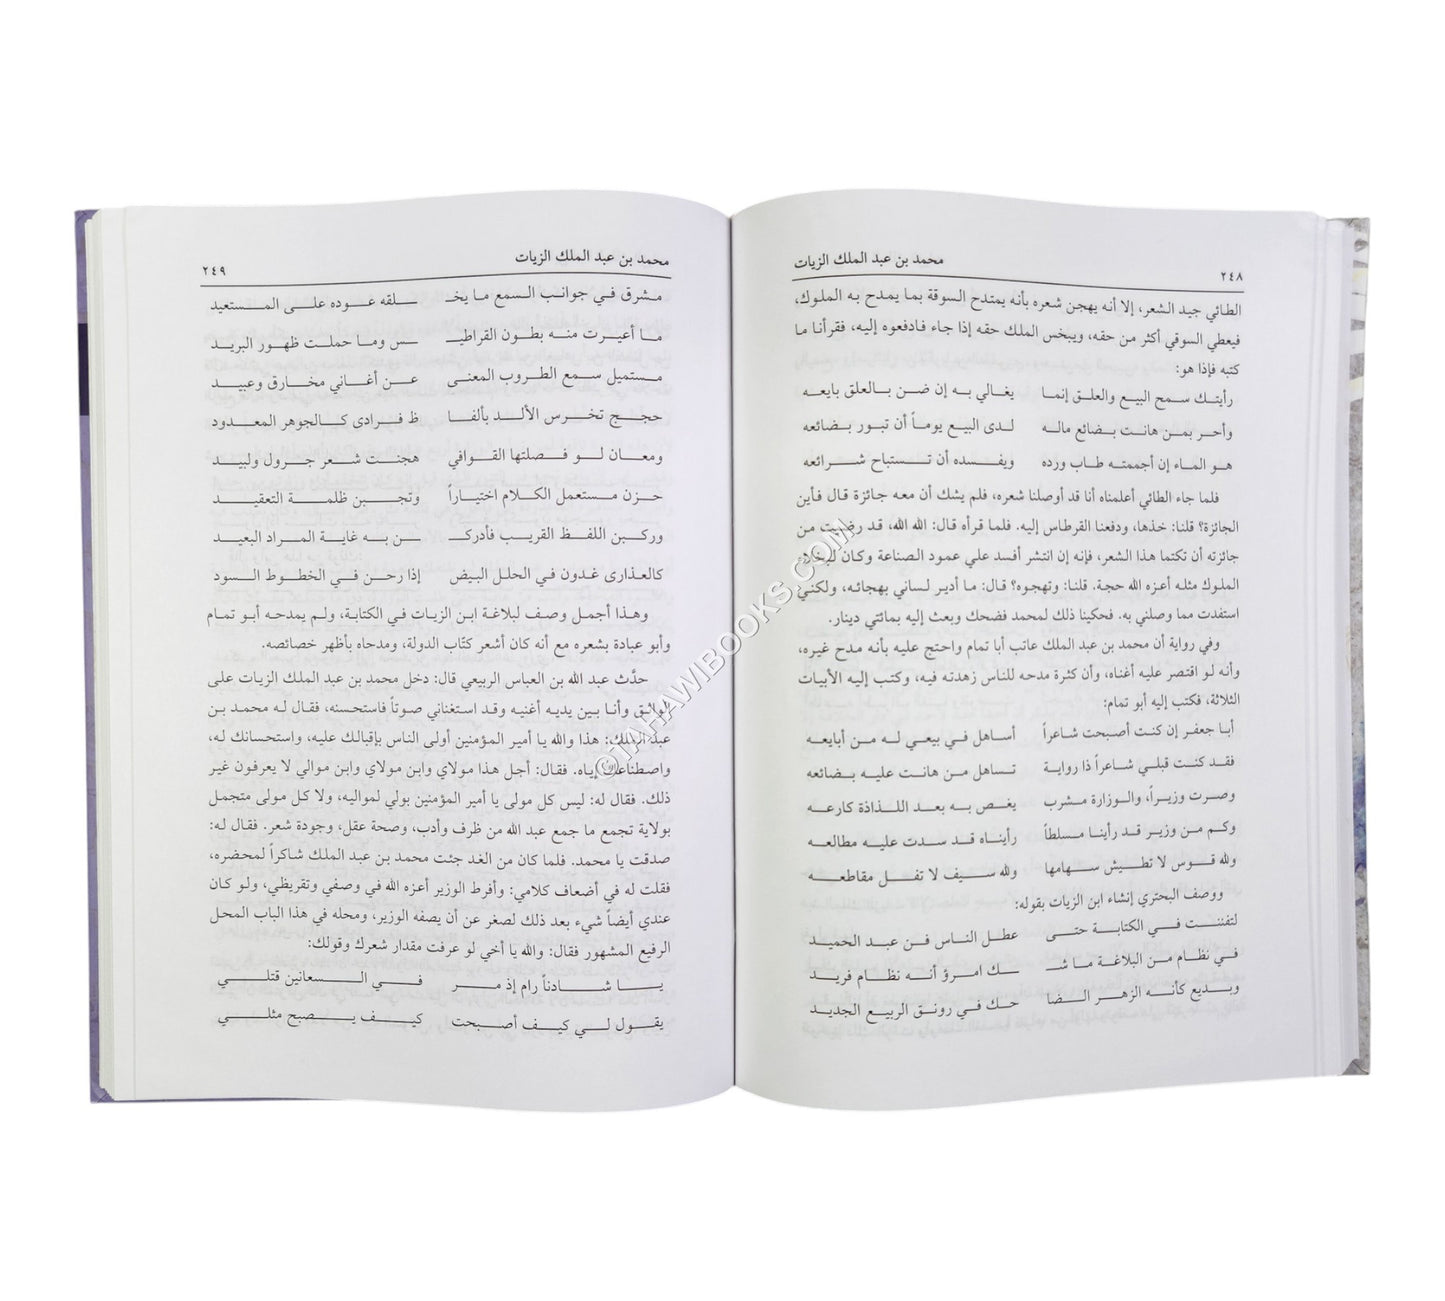 ٢٤٨ محمد بن عبد الملك الزيات
الطائي جيد الشعر، إلا أنه يهجن شعره بأنه يمتدح السوقة بما يمدح به الملوك،
فيعطي السوقي أكثر من حقه، ويبخس الملك حقه إذا جاء فادفعوه إليه، فقرأنا ما
كتبه فإذا هو:
رأيتك سمح البيع والعلق إنما يغالي به إن ضن بالعلق بايعه
وأحر بمن هانت بضائع ماله لدى البيع يوماً أن تبور بضائعه
هو الماء إن أجممته طاب ورده ويفسده أن تستباح شرائعه
فلما جاء الطائي أعلمناه أنا قد أوصلنا شعره، فلم يشك أن معه جائزة قال فأين
الجائزة؟ قلنا: خذها، ودفعنا القرطاس إليه. فلما قرأه قال: الله الله، قد رضيت من
جائزته أن تكتما هذا الشعر، فإنه إن انتشر أفسد علي عمود الصناعة وكان لبخلاء
الملوك مثله أعزه الله حجة. قلنا: وتهجوه؟ قال: ما أدير لساني بهجائه، ولكني
استفدت مما وصلني به. فحكينا ذلك لمحمد فضحك وبعث إليه بمائتي دينار.
وفي رواية أن محمد بن عبد الملك عاتب أبا تمام واحتج عليه بأنه مدح غيره،
وأنه لو اقتصر عليه أغناه، وأن كثرة مدحه للناس زهدته فيه، وكتب إليه الأبيات
الثلاثة، فكتب إليه أبو تمام:
أبا جعفر إن كنت أصبحت شاعراً أساهل في بيعي له من أبايعه
فقد كنت قبلي شاعراً ذا رواية تساهل من هانت عليه بضائعه
وصرت وزيراً، والوزارة مشرب يغص به بعد اللذاذة كارعه
وكم من وزير قد رأينا مسلطاً رأيناه قد سدت عليه مطالعه
ولله قوس لا تطيش سهامها ولله سيف لا تفل مقاطعه
ووصف البحتري إنشاء ابن الزيات بقوله:
لتفننت في الكتابة حتى عطل الناس فن عبد الحميد
في نظام من البلاغة ما شـ ـك امرؤ أنه نظام فريد
وبديع كأنه الزهر الضا حك في رونق الربيع الجديد
محمد بن عبد الملك الزيات ٢٤٩
مشرق في جوانب السمع ما يخـ ـلقه عوده على المستعيد
ما أعيرت منه بطون القراطيـ ـس وما حملت ظهور البريد
مستميل سمع الطروب المعنى عن أغاني مخارق وعبيد
حجج تخرس الألد بألفا ظ فرادى كالجوهر المعدود
ومعان لو فصلتها القوافي هجنت شعر جرول ولبيد
حزن مستعمل الكلام اختياراً وتجبن ظلمة التعقيد
وركبن اللفظ القريب فأدركـ ـن به غاية المراد البعيد
كالعذارى غدون في الحلل البيض إذا رحن في الخطوط السود
وهذا أجمل وصف لبلاغة ابن الزيات في الكتابة، ولم يمدحه أبو تمام
وأبو عبادة بشعره مع أنه كان أشعر كتّاب الدولة، ومدحاه بأظهر خصائصه.
حدّث عبد الله بن العباس الربيعي قال: دخل محمد بن عبد الملك الزيات على
الواثق وأنا بين يديه أغنيه وقد استغناني صوتاً فاستحسنه، فقال له محمد بن
عبد الملك: هذا والله يا أمير المؤمنين أولى الناس بإقبالك عليه، واستحسانك له،
واصطناعك إياه. فقال: أجل هذا مولاي وابن مولاي وابن موالي لا يعرفون غير
ذلك. فقال له: ليس كل مولى يا أمير المؤمنين بولي لمواليه، ولا كل مولى متجمل
بولاية تجمع ما جمع عبد الله من ظرف وأدب، وصحة عقل، وجودة شعر. فقال له:
صدقت يا محمد. فلما كان من الغد جئت محمد بن عبد الملك شاكراً لمحضره،
فقلت له في أضعاف كلامي: وأفرط الوزير أعزه الله في وصفي وتقريظي، ولو كان
عندي أيضاً شيء بعد ذلك لصغر عن أن يصفه الوزير، ومحله في هذا الباب المحل
الرفيع المشهور فقال: والله يا أخي لو عرفت مقدار شعرك وقولك:
يا شادناً رام إذ مر في السعانين قتلي
يقول لي كيف أصبحت كيف يصبح مثلي
©TAHAWIBOOKS.COM